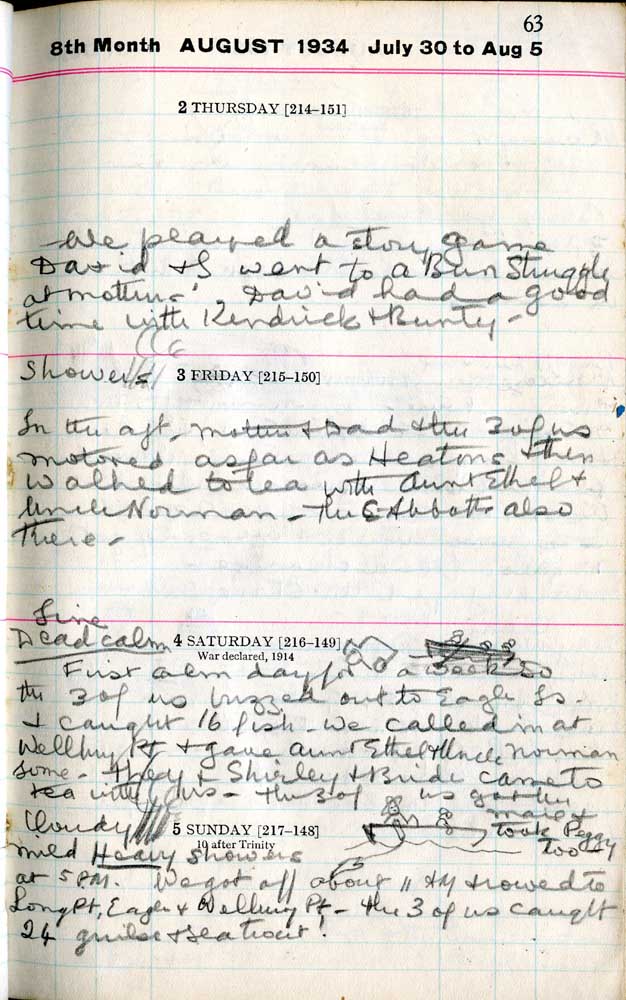 63
8th Month AUGUST 1934 July 30 to Aug 5
2 THURSDAY [214–151]
We played a story game
David & I went to a Bun Struggle
at mothers', David had a good
time with Kendrick & Bunty -
Showers 3 FRIDAY [215–150]
In the aft. mother & Dad & the 3 of us
motored as far as Heatons & then
walked to tea with Aunt Ethel &
Uncle Norman - The Abbotts also
there -
Fine
Dead calm 4 SATURDAY [216–149]
War declared, 1914
First calm day for a week so
the 3 of us buzzed out to Eagle Is.
& caught 16 fish. We called in at
Wellbury Pt & gave Aunt Ethel & Uncle Norman
some - & Shirley & Bride came to
tea with us - the 3 of us got the
mail &
Cloudy 5 SUNDAY [217–148] took Peggy
10 after Trinity too -
mild Heavy showers
at 5 P.M. We got off about 11 AM & rowed to
Long Pt, Eagle & Wellbury Pt - the 3 of us caught
24 grilse & sea trout!